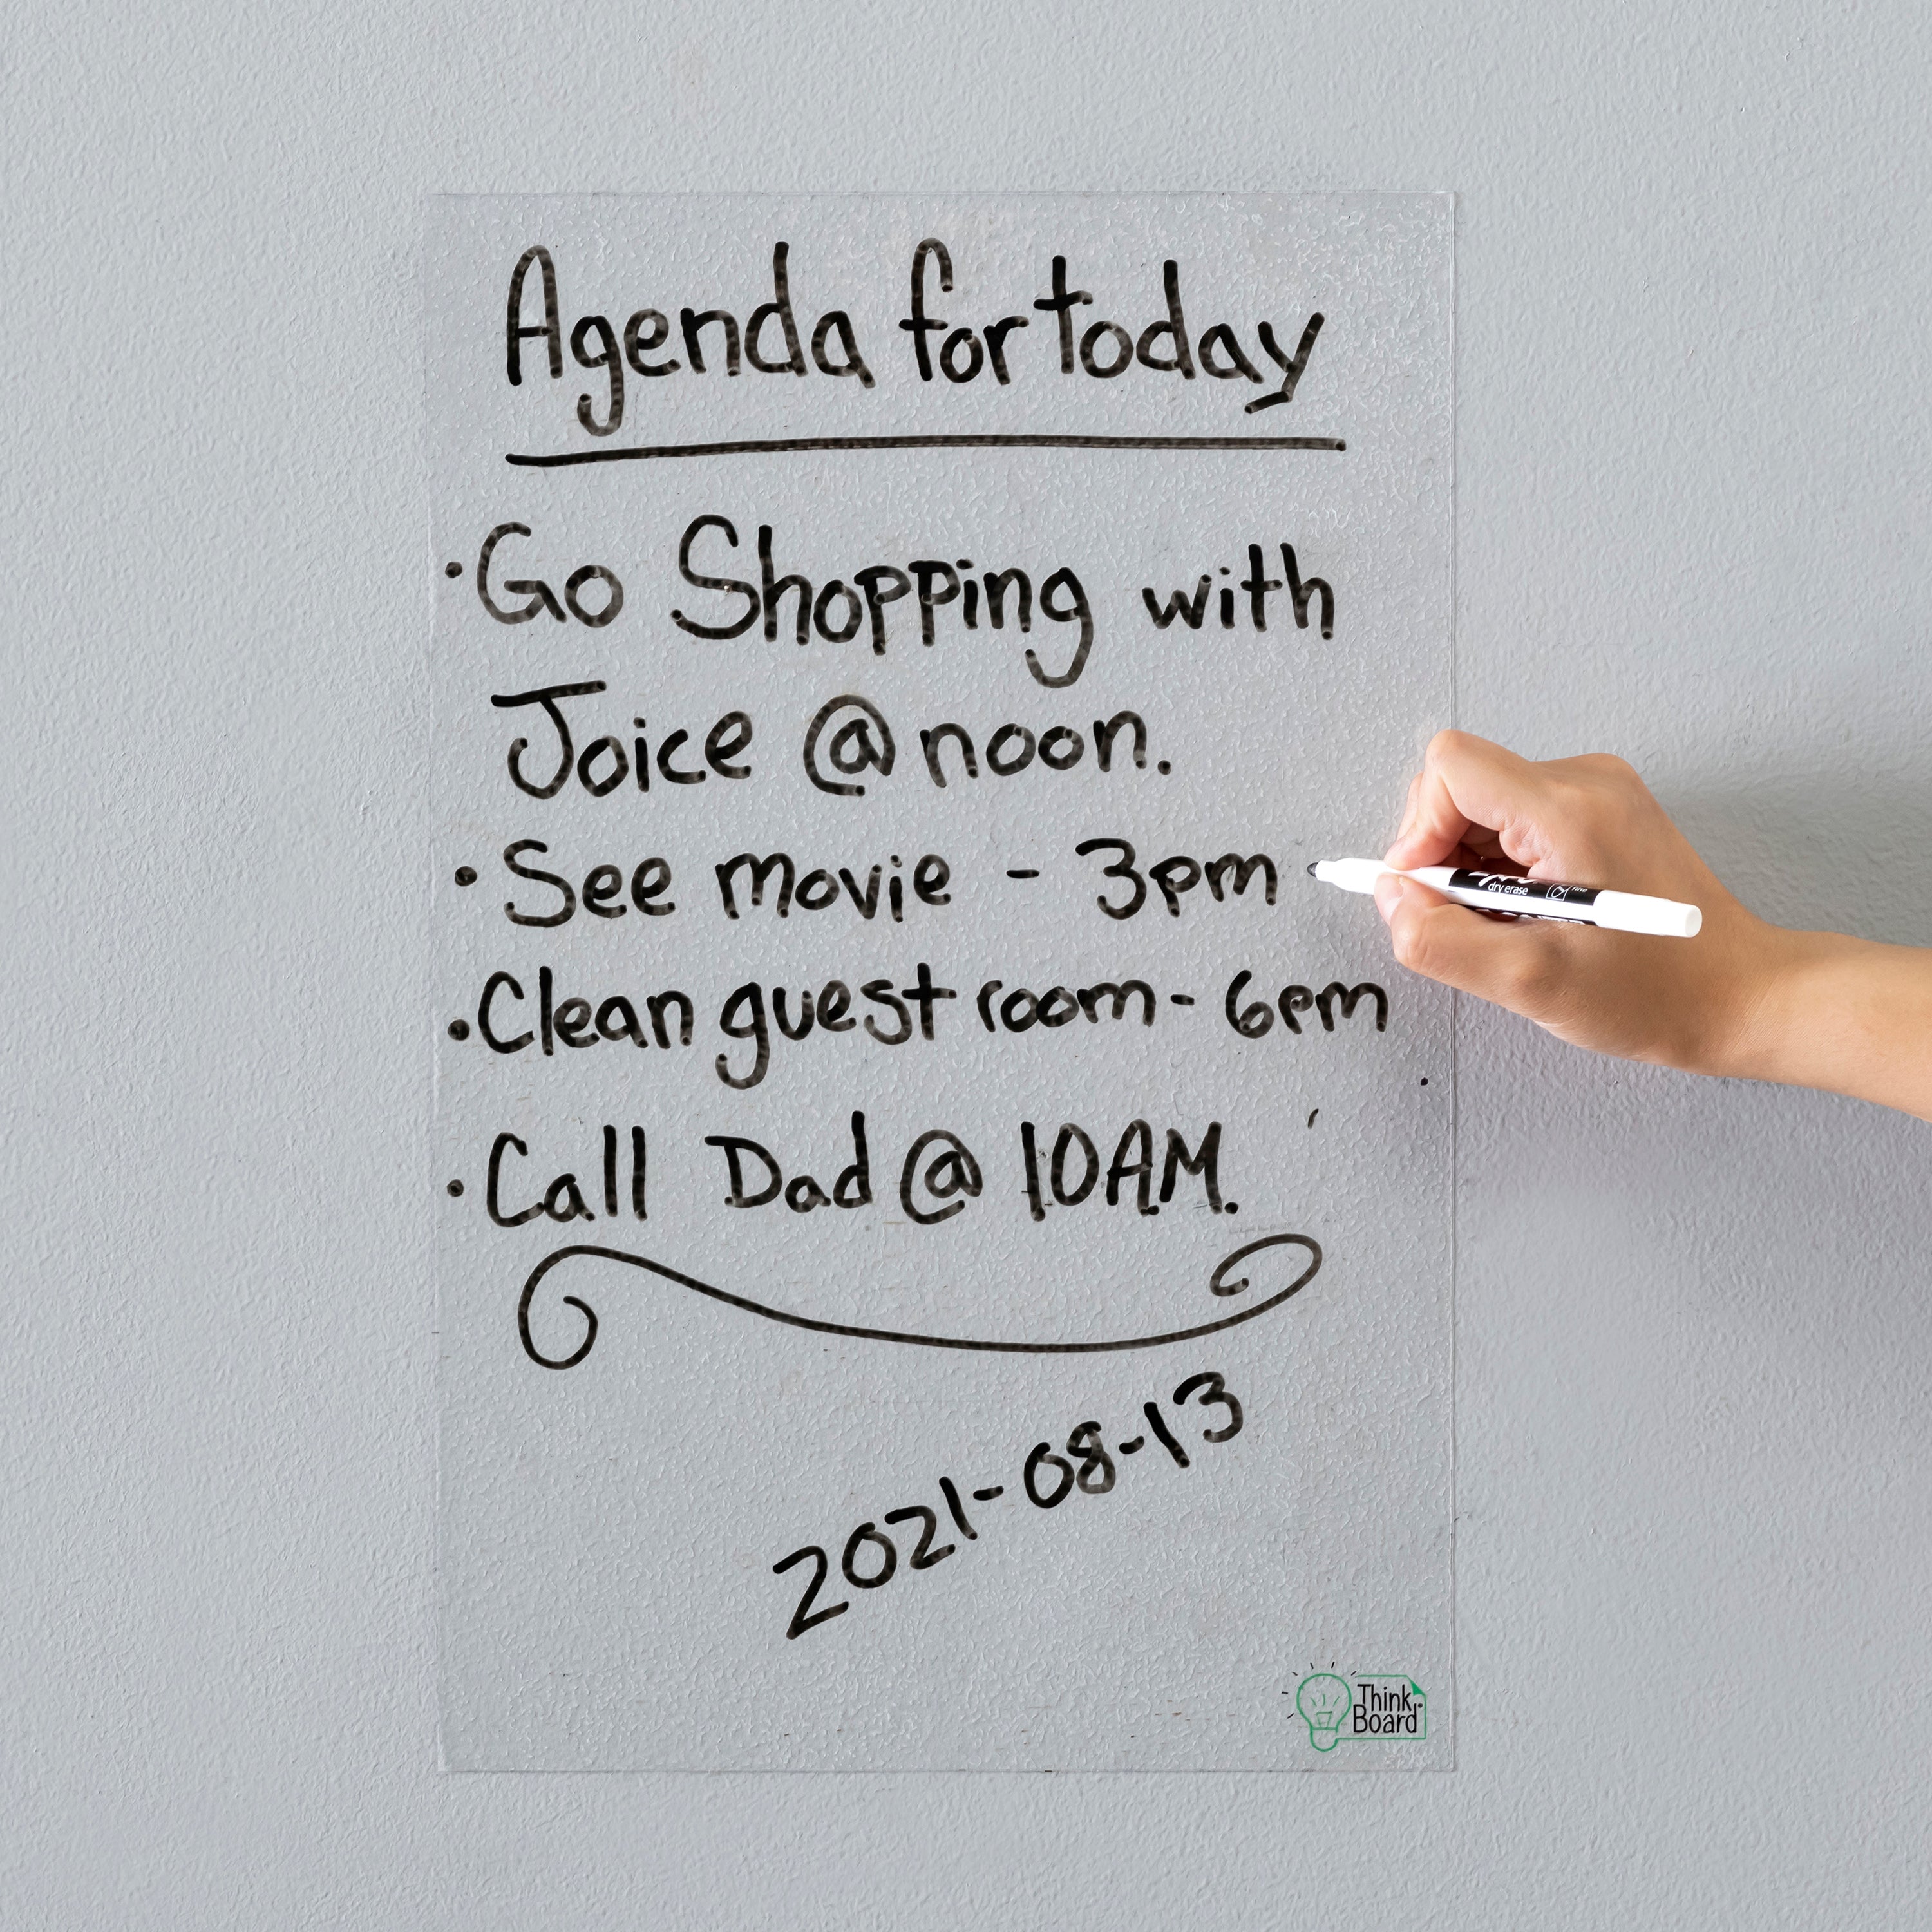 Agenda for today
• Go Shopping with
Joice @ noon.
• See movie - 3pm
• Clean guest room - 6pm
• Call Dad @ 10AM.
2021-08-13
Think
Board
dry erase
fine